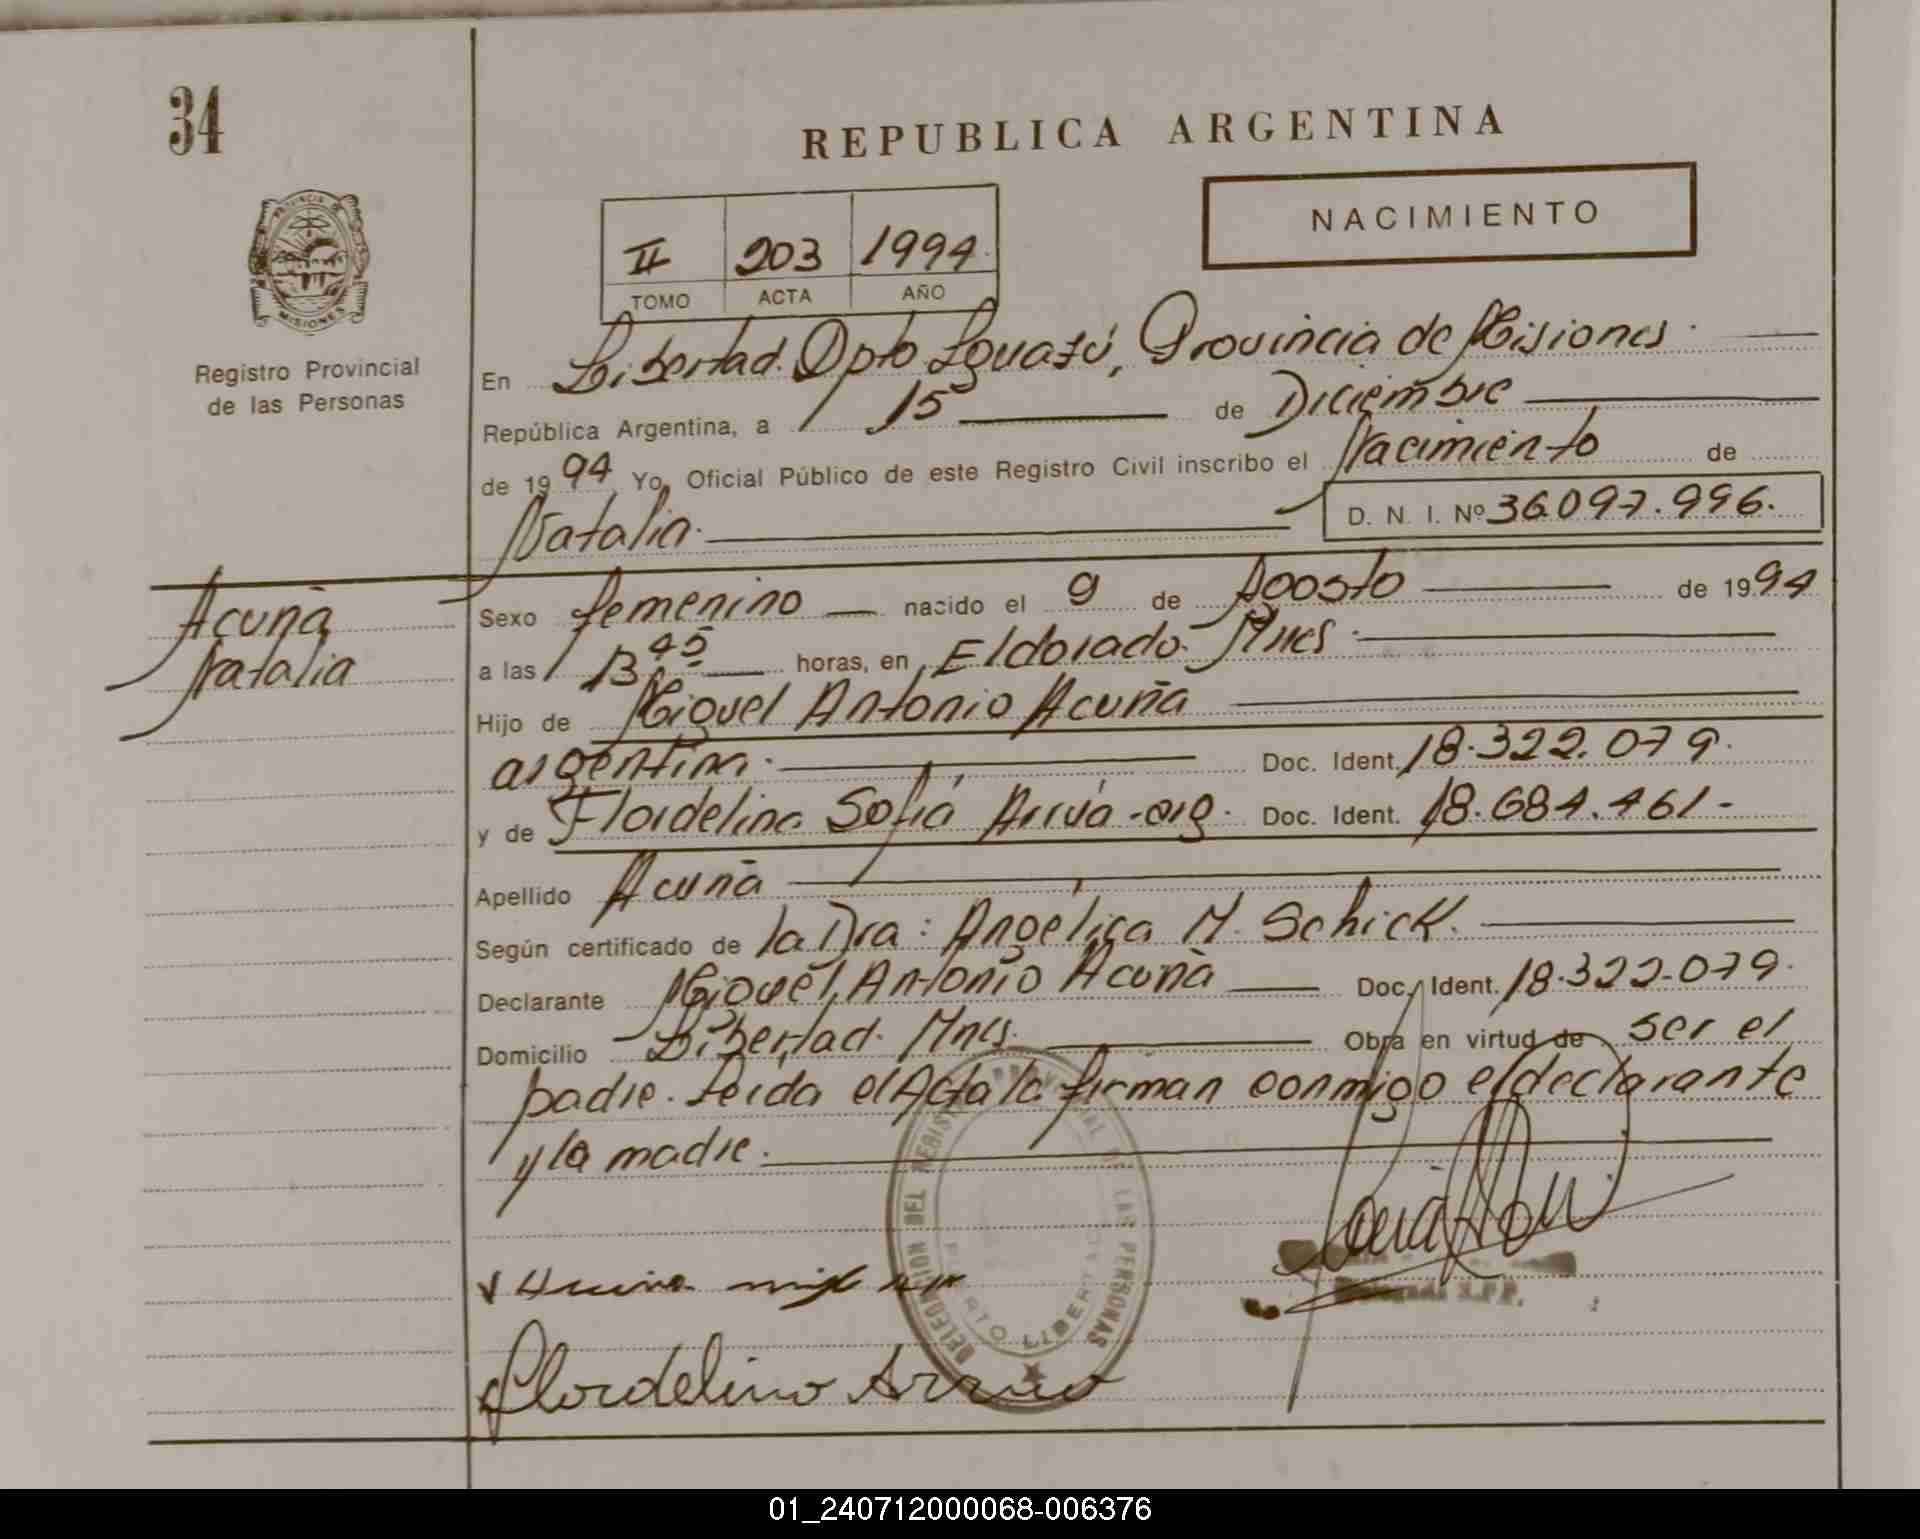 34
REPUBLICA ARGENTINA
NACIMIENTO
II 203 1994
TOMO ACTA AÑO
PROVINCIA DE
MISIONES
Registro Provincial
de las Personas
En Libertad. Dpto Iguazú, Provincia de Misiones.
República Argentina, a 15 de Diciembre
de 1994 Yo, Oficial Público de este Registro Civil inscribo el Nacimiento de
Natalia. D. N. I. Nº 36.097.996.
Acuña
Natalia
Sexo femenino nacido el 9 de Agosto de 1994
a las 13 45 horas, en Eldorado. Mnes.
Hijo de Miguel Antonio Acuña
argentina. Doc. Ident. 18.322.079.
y de Flordelina Sofia Arrúa-arg. Doc. Ident. 18.684.461-
Apellido Acuña
Según certificado de la Dra: Angélica M. Schick.
Declarante Miguel Antonio Acuña Doc. Ident. 18.322.079.
Domicilio Libertad. Mnes. Obra en virtud de ser el
padre. Leida el Acta la firman conmigo el declarante
y la madre.
DELEGACION DEL REGISTRO PROVINCIAL DE LAS PERSONAS
PUERTO LIBERTAD
Flordelina Arrua
01_240712000068-006376